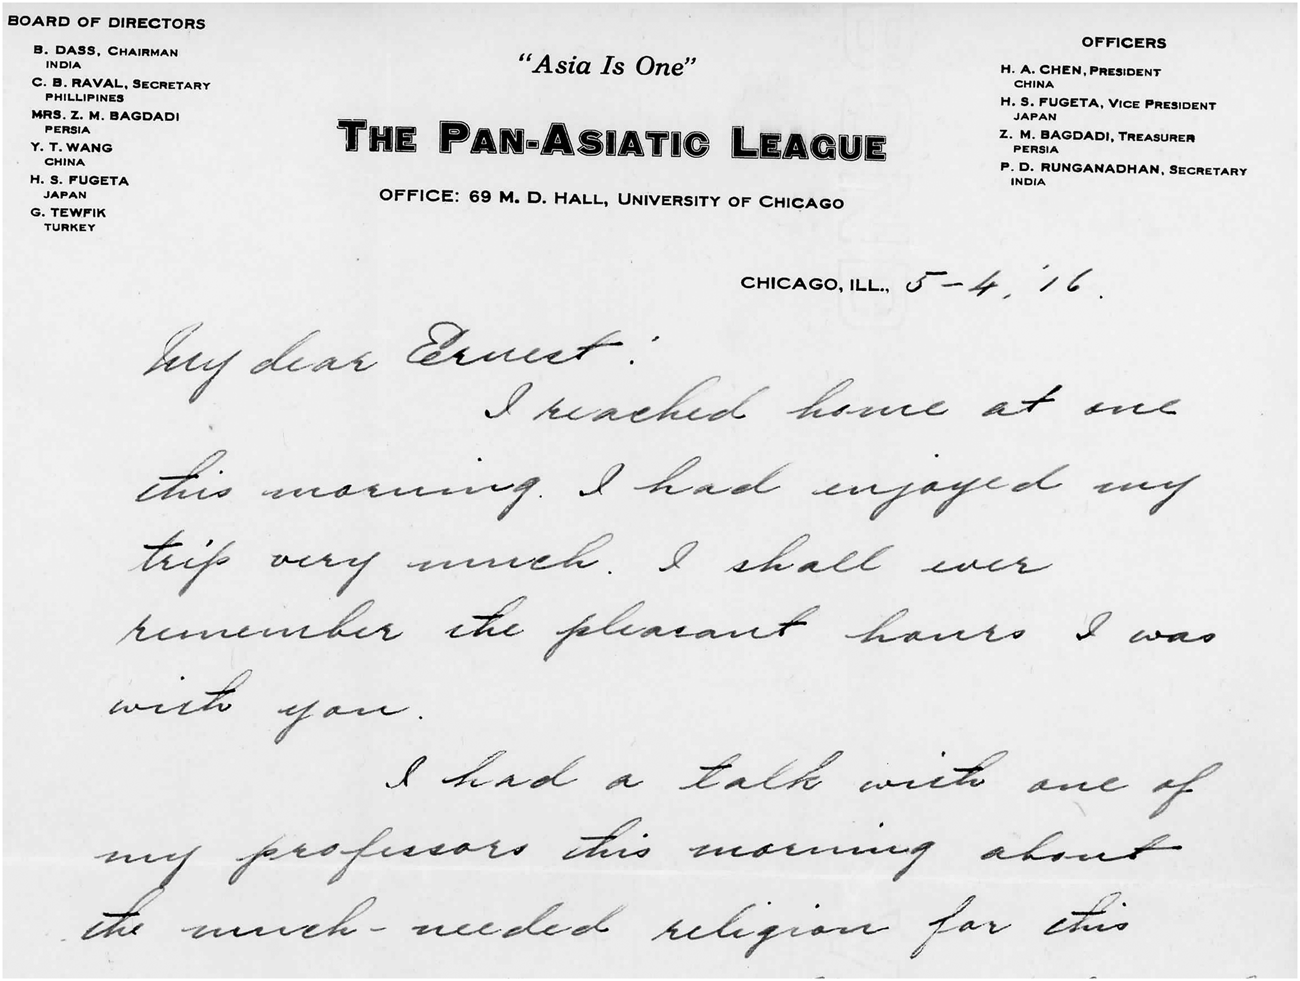 BOARD OF DIRECTORS
B. DASS, CHAIRMAN
INDIA
C. B. RAVAL, SECRETARY
PHILLIPINES
MRS. Z. M. BAGDADI
PERSIA
Y. T. WANG
CHINA
H. S. FUGETA
JAPAN
G. TEWFIK
TURKEY
"Asia Is One"
THE PAN-ASIATIC LEAGUE
OFFICE: 69 M. D. HALL, UNIVERSITY OF CHICAGO
OFFICERS
H. A. CHEN, PRESIDENT
CHINA
H. S. FUGETA, VICE PRESIDENT
JAPAN
Z. M. BAGDADI, TREASURER
PERSIA
P. D. RUNGANADHAN, SECRETARY
INDIA
CHICAGO, ILL., 5-4, '16.
My dear Ernest:
I reached home at one
this morning. I had enjoyed my
trip very much. I shall ever
remember the pleasant hours I was
with you.
I had a talk with one of
my professors this morning about
the much-needed religion for this